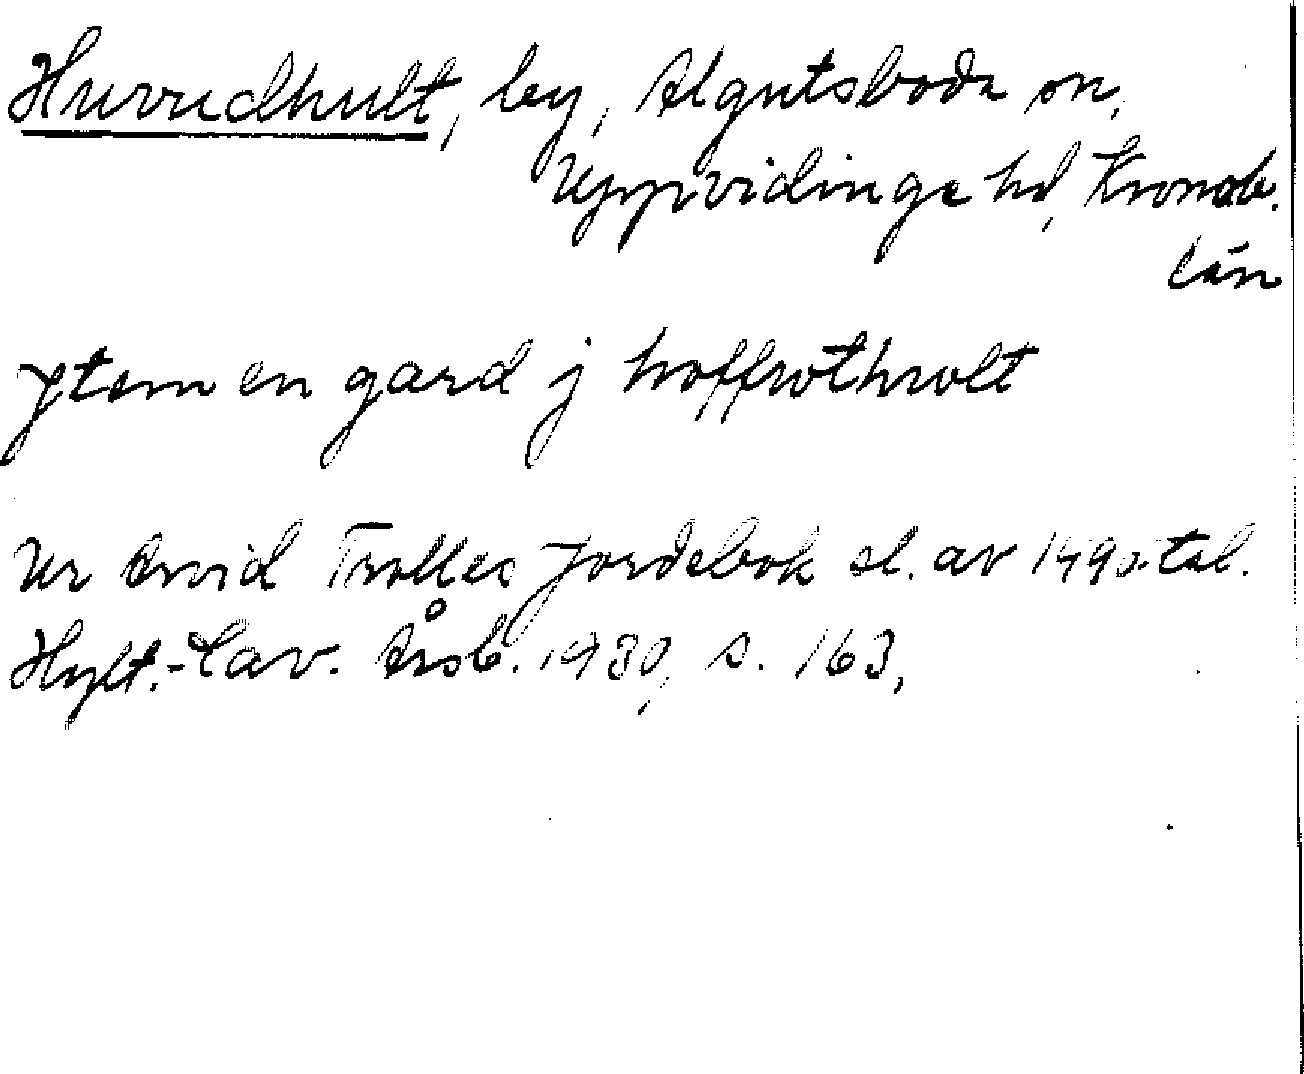 Huvudhult, by, Algutsboda sn,
Uppvidinge hd, Kronob.
län
ytem en gard j hoffwothwlt
Ur Arvid Trolles Jordebok sl. av 1490-tal.
Hylt.-Cav. Årsb. 1930, s. 163,